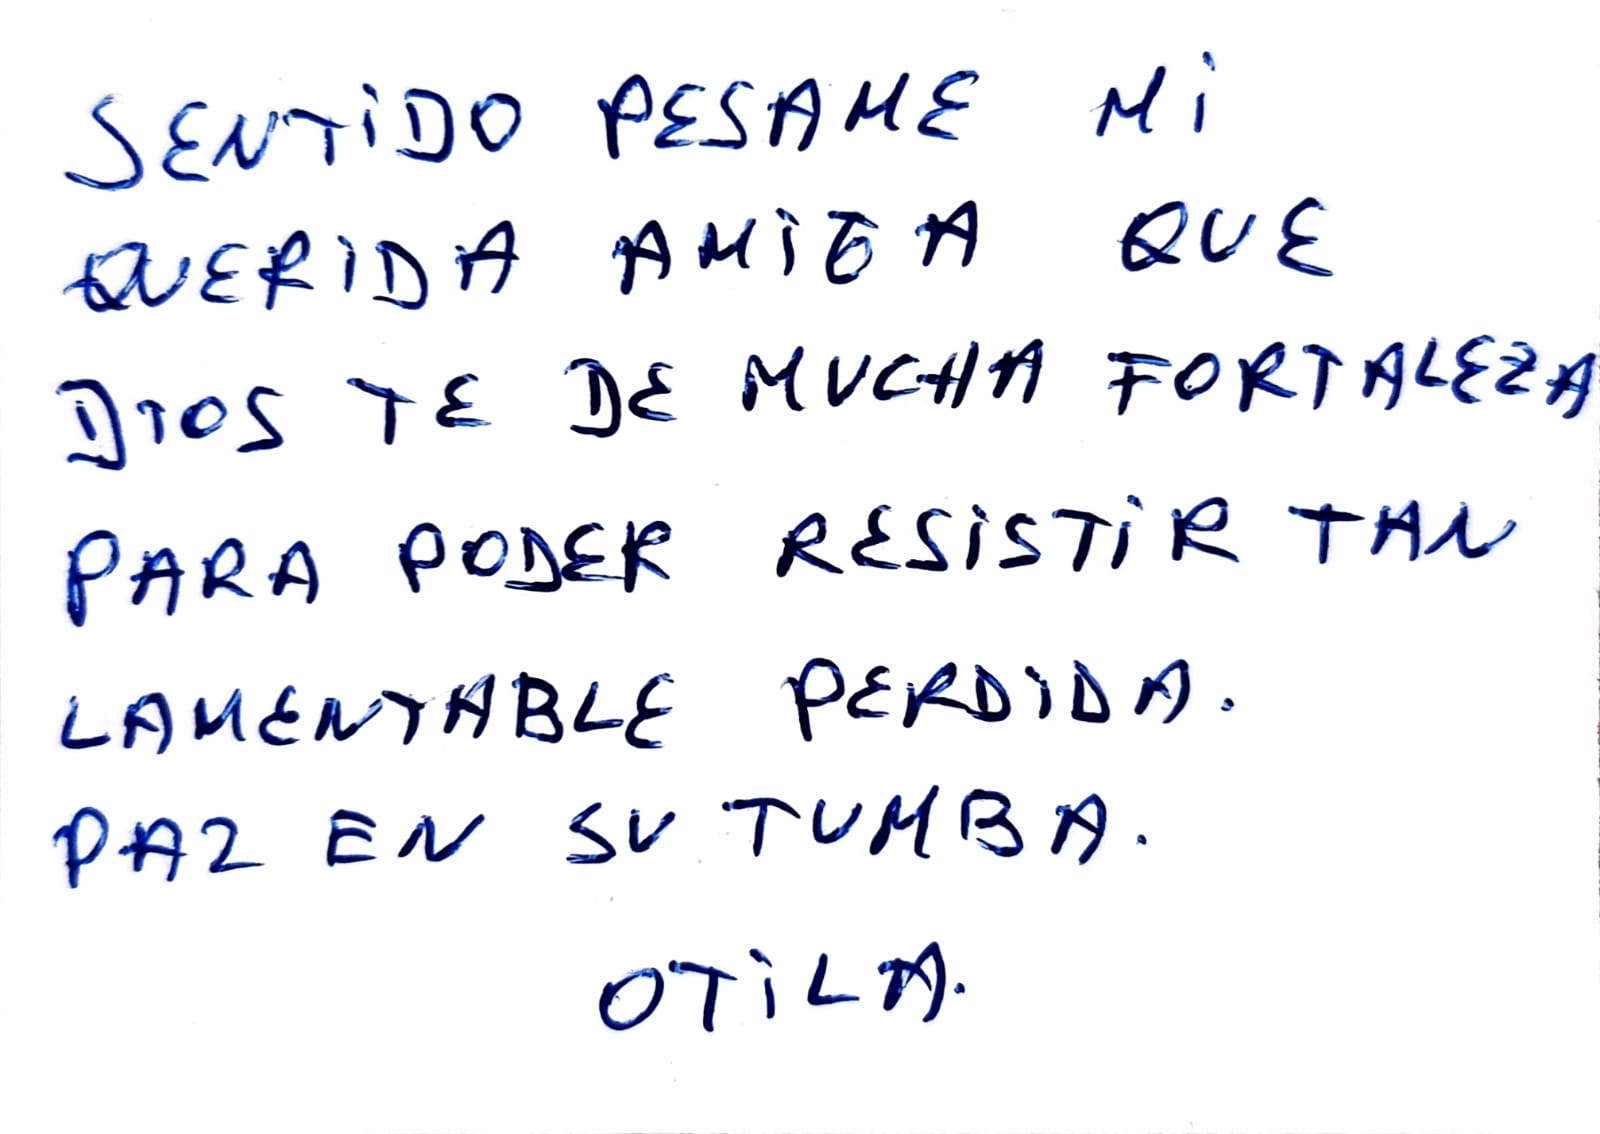 SENTIDO PESAME MI
QUERIDA AMIGA QUE
DIOS TE DE MUCHA FORTALEZA
PARA PODER RESISTIR TAN
LAMENTABLE PERDIDA.
PAZ EN SU TUMBA.
OTILA.